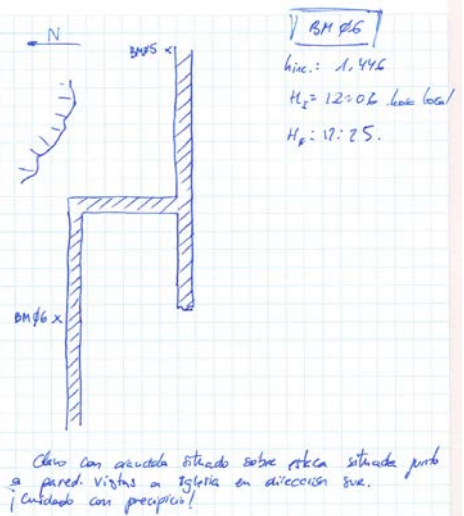 N
BMØ5 x
BMØ6
hinc.: 1.446
H_I = 12:06 hora local
H_F: 12:25.
BMØ6 x
Clavo con arandela situado sobre estaca situada junto
a pared. vistas a Iglesia en dirección sur.
¡Cuidado con precipicio!